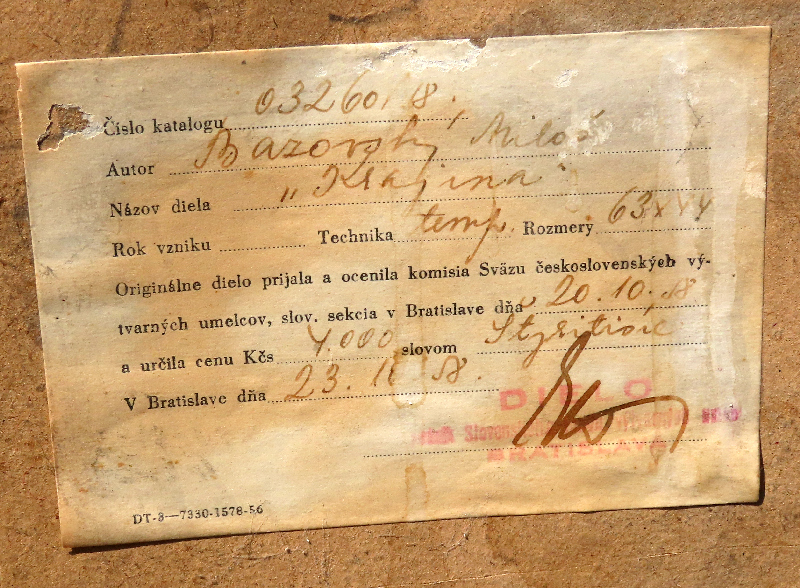 Číslo katalogu 03260/8.
Autor Bazovský Miloš
Názov diela „Krajina"
Rok vzniku Technika temp. Rozmery 63x44
Originálne dielo prijala a ocenila komisia Sväzu československých vý-
tvarných umelcov, slov. sekcia v Bratislave dňa 20.10.
a určila cenu Kčs 4.000 slovom Štyritisíc
V Bratislave dňa 23.
DIELO
BRATISLAVA
DT-3—7330-1578-56